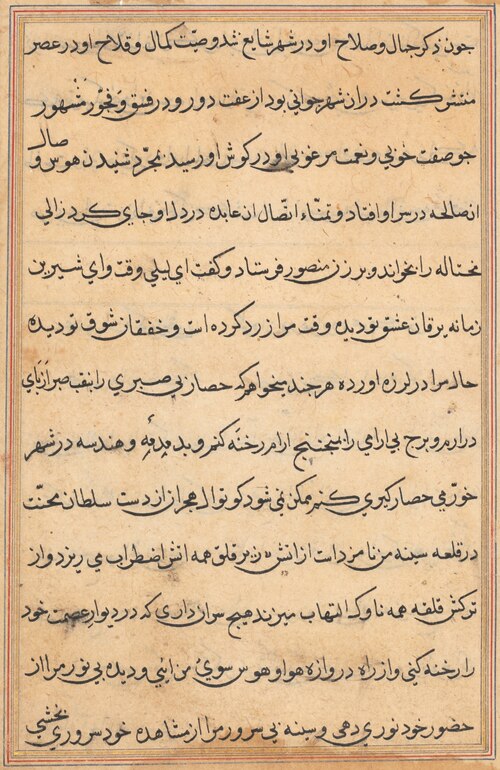 جون ذکر جمال و صلاح او در شهر شایع شد و صیت کمال و فلاح او در عصر
منتشر کشت در ان شهر جوانی بود از عفت دور و در فسق و فجور مشهور
جو صفت خوبی و نعت مرغوبی او در کوش او رسید بمجرد شنیدن هوس وصال
ان صالحه در سر او افتاد و تمناء اتصال ان عابده در دل او جای کرد زالی
محتاله را بخواند و بر زن منصور فرستاد و کفت ای لیلی وقت و ای شیرین
زمانه یرقان عشق تو دیده وقت مرا زرد کرده است و خفقان شوق تو دیده
حال مرا در لرزه اورده هر جند میخواهم که حصار بی صبری را بنقب صبر از پای
در ارم و برج بی ارامی را بمنجنیج ارام رخنه کنم و بدمدمه و هندسه در شهر
خرمی حصار کیری کنم ممکن نمی شود کوتوال هجر از از دست سلطان محنت
در قلعه سینه من نامزد است از اتش زنه قلق همه اتش اضطراب می ریزد و از
ترکش قلقه همه ناوک التهاب میزند هیج سر ان داری که در دیوار عصمت خود
را رخنه کنی و از راه دروازه هوا و هوس سوی من ایی و دیده بی نور مرا از
حضور خود نوری دهی و سینه بی سرور مرا از مشاهده خود سروری بخشی